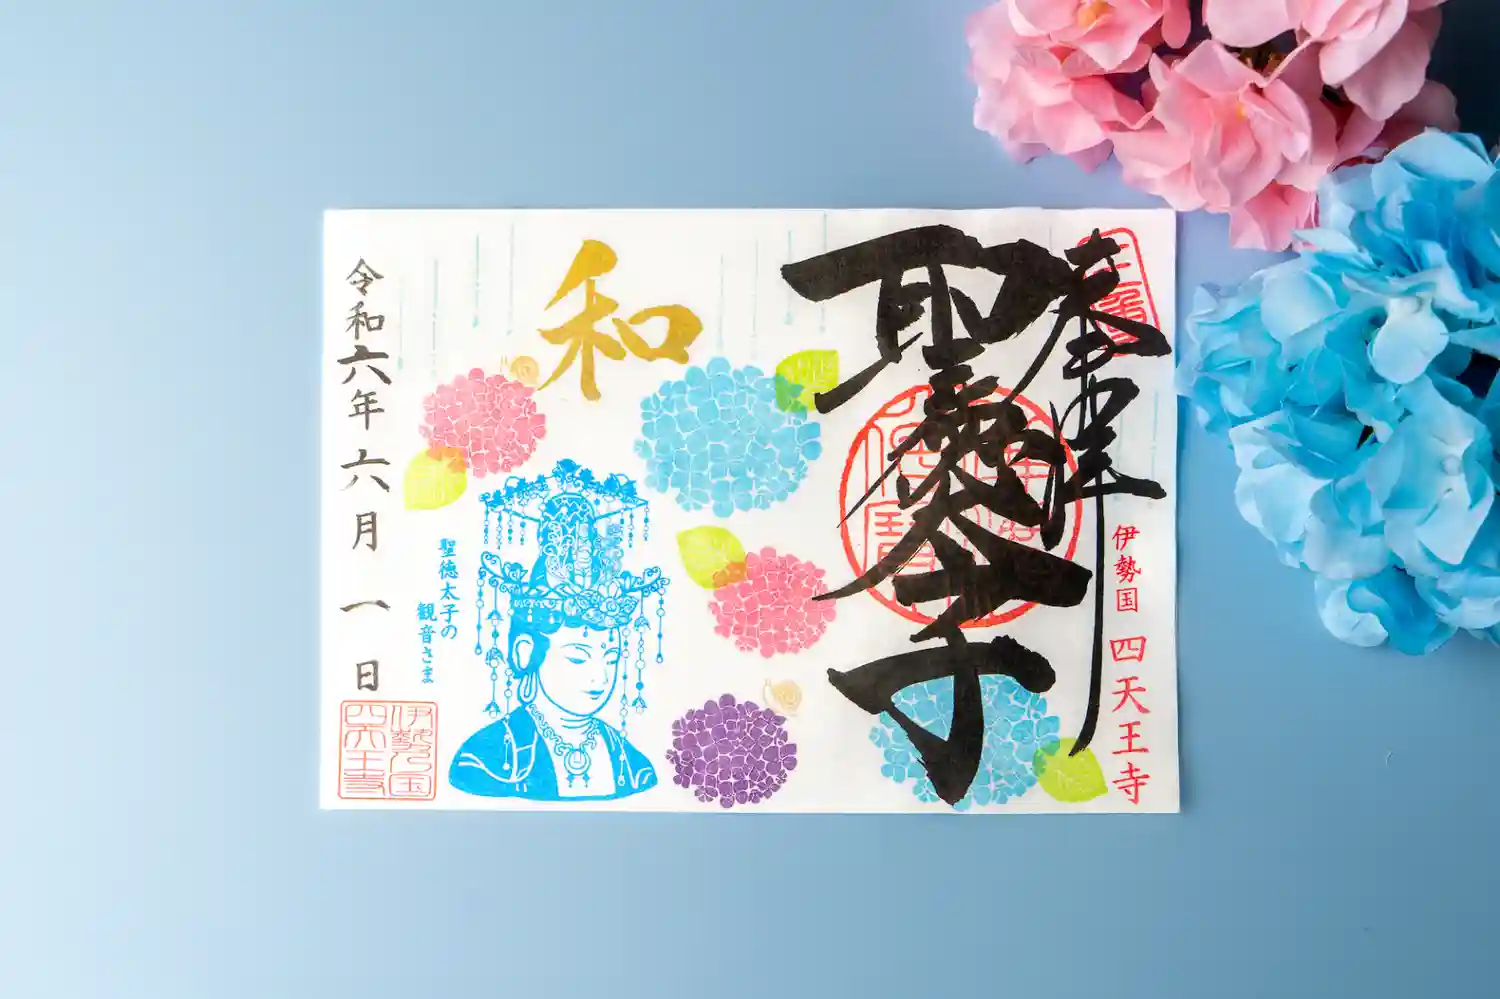 奉拝
聖徳太子
伊勢国 四天王寺
和
聖徳太子の
観音さま
令和六年六月一日
伊勢乃国
四天王寺